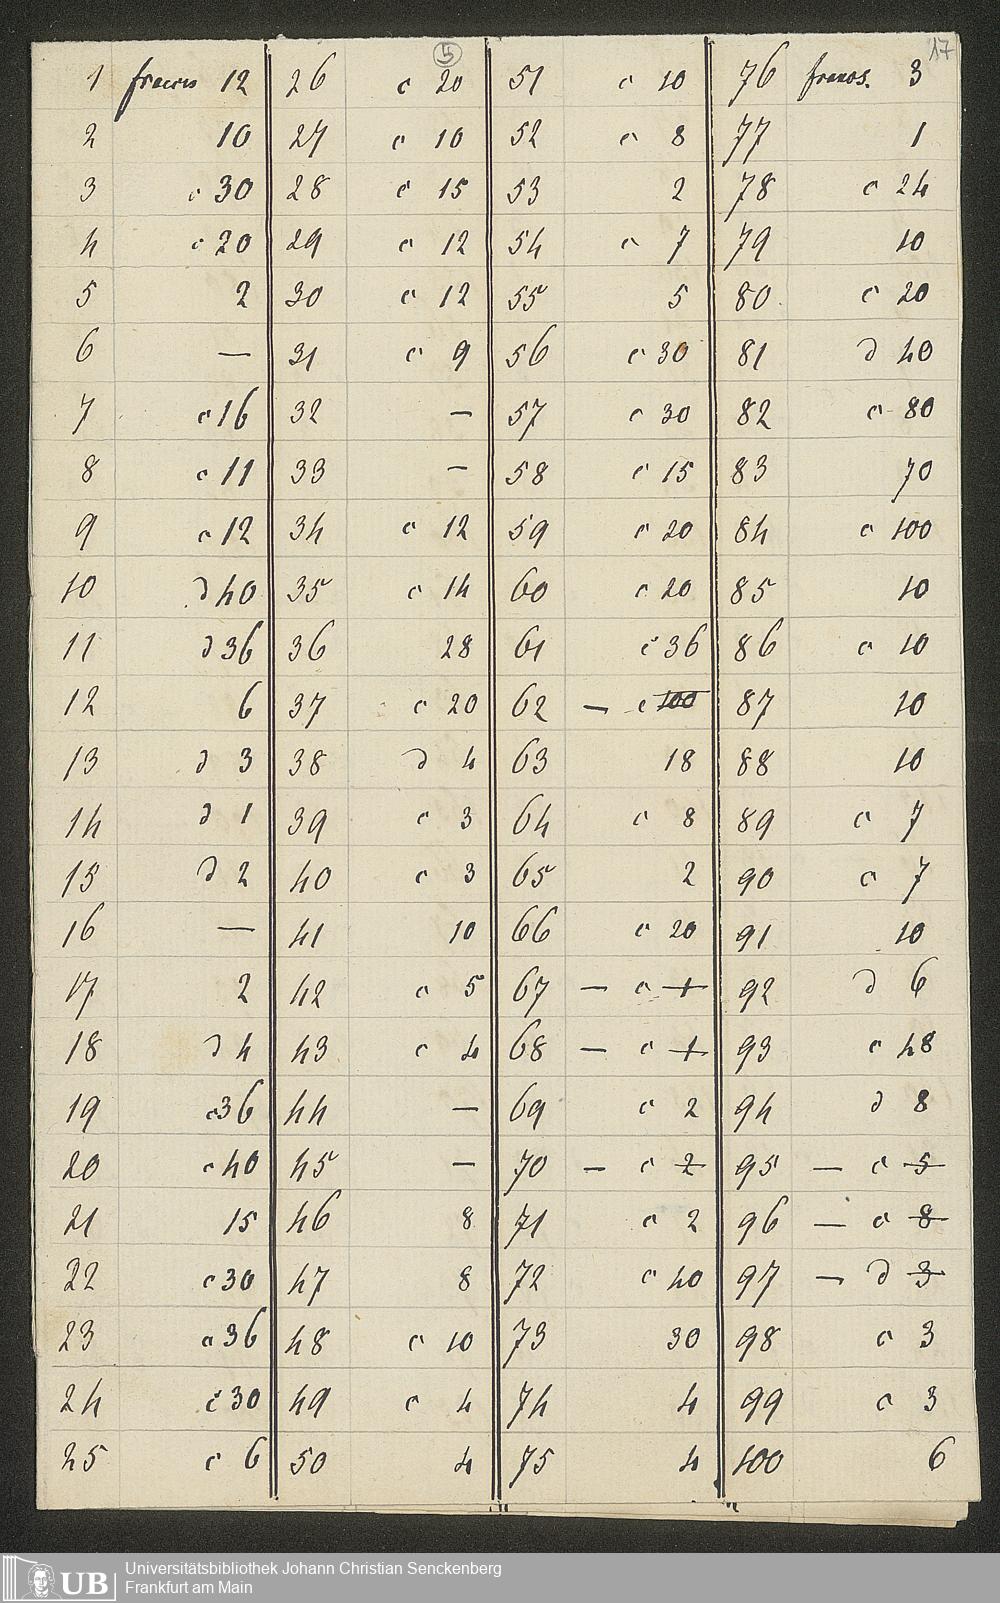 5
17
1 francs 12 26 c 20 51 c 10 76 francs. 3
2 10 27 c 10 52 c 8 77 1
3 c 30 28 c 15 53 2 78 c 24
4 c 20 29 c 12 54 c 7 79 10
5 2 30 c 12 55 5 80 c 20
6 — 31 c 9 56 c 30 81 d 40
7 c 16 32 — 57 c 30 82 c 80
8 c 11 33 — 58 c 15 83 70
9 c 12 34 c 12 59 c 20 84 c 100
10 d 40 35 c 14 60 c 20 85 10
11 d 36 36 28 61 c 36 86 c 10
12 6 37 c 20 62 — c 100 87 10
13 d 3 38 d 4 63 18 88 10
14 d 1 39 c 3 64 c 8 89 c 7
15 d 2 40 c 3 65 2 90 c 7
16 — 41 10 66 c 20 91 10
17 2 42 c 5 67 — c 1 92 d 6
18 d 4 43 c 4 68 — c 1 93 c 48
19 c 36 44 — 69 c 2 94 d 8
20 c 40 45 — 70 — c 2 95 — c 5
21 15 46 8 71 c 2 96 — c 8
22 c 30 47 8 72 c 40 97 — d 3
23 c 36 48 c 10 73 30 98 c 3
24 c 30 49 c 4 74 4 99 c 3
25 c 6 50 4 75 4 100 6
UB
Universitätsbibliothek Johann Christian Senckenberg
Frankfurt am Main